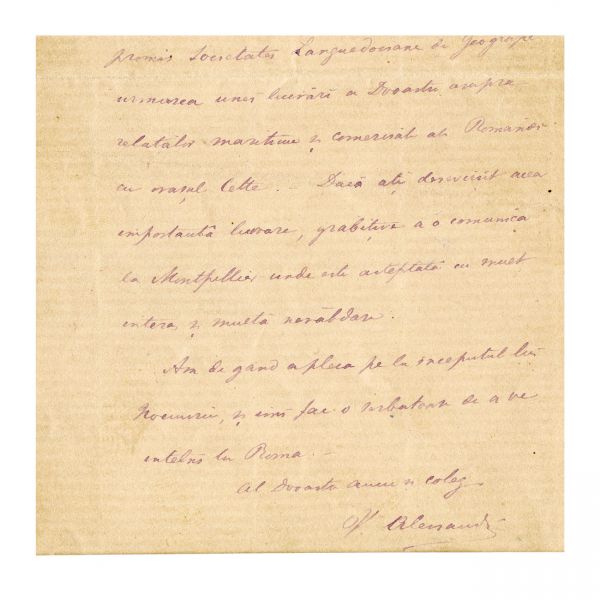 promis Societatei Languedociane de Geografie
urmarea unei lucrări a Dvoastre asupra
relatiilor maritime și comerciale ale Romaniei
cu orașul Cette. — Dacă ați desevirsit acea
importantă lucrare, grăbiți-ve a o comunica
la Montpellier unde este asteptată cu mult
interes și multă nerăbdare.
Am de gand a pleca pe la inceputul lui
Noemvrie, și imi fac o serbatoare de a ve
intelni la Roma. —
Al Dvoastre amic și coleg
V. Alecsandri